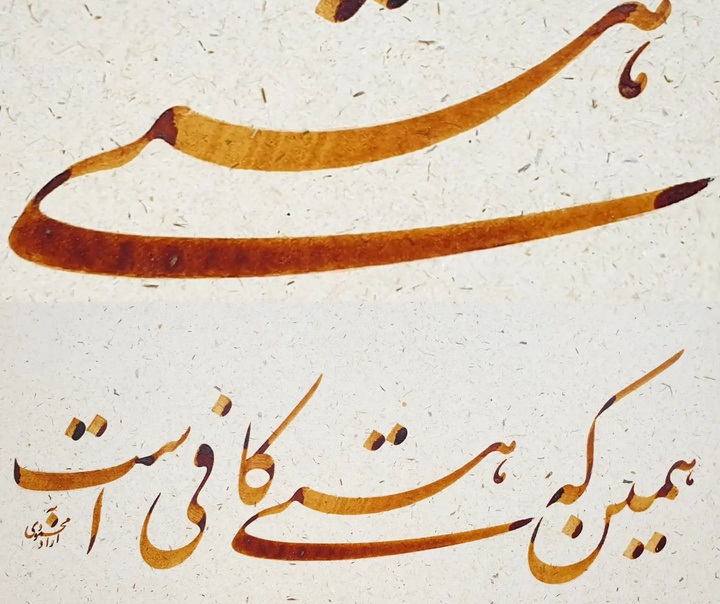 هستی
همین که هستی کافی است
آزاد محمودی